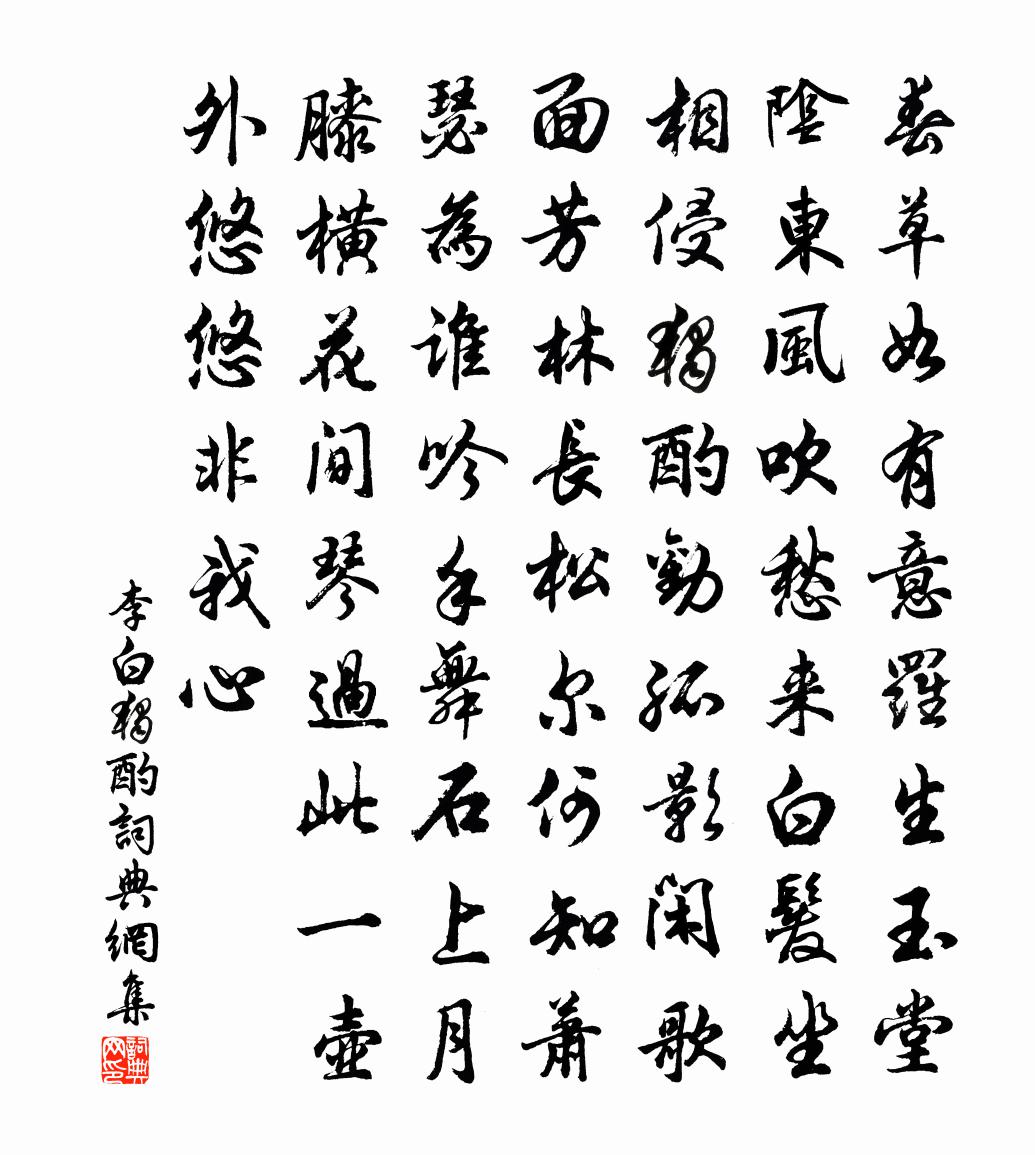 春草如有意羅生玉堂
陰東風吹愁来白髮坐
相侵獨酌勸孤影閑歌
面芳林長松尔何知蕭
瑟為誰吟手舞石上月
膝橫花間琴過此一壺
外悠悠非我心
李白獨酌詞典網集
詞典网印